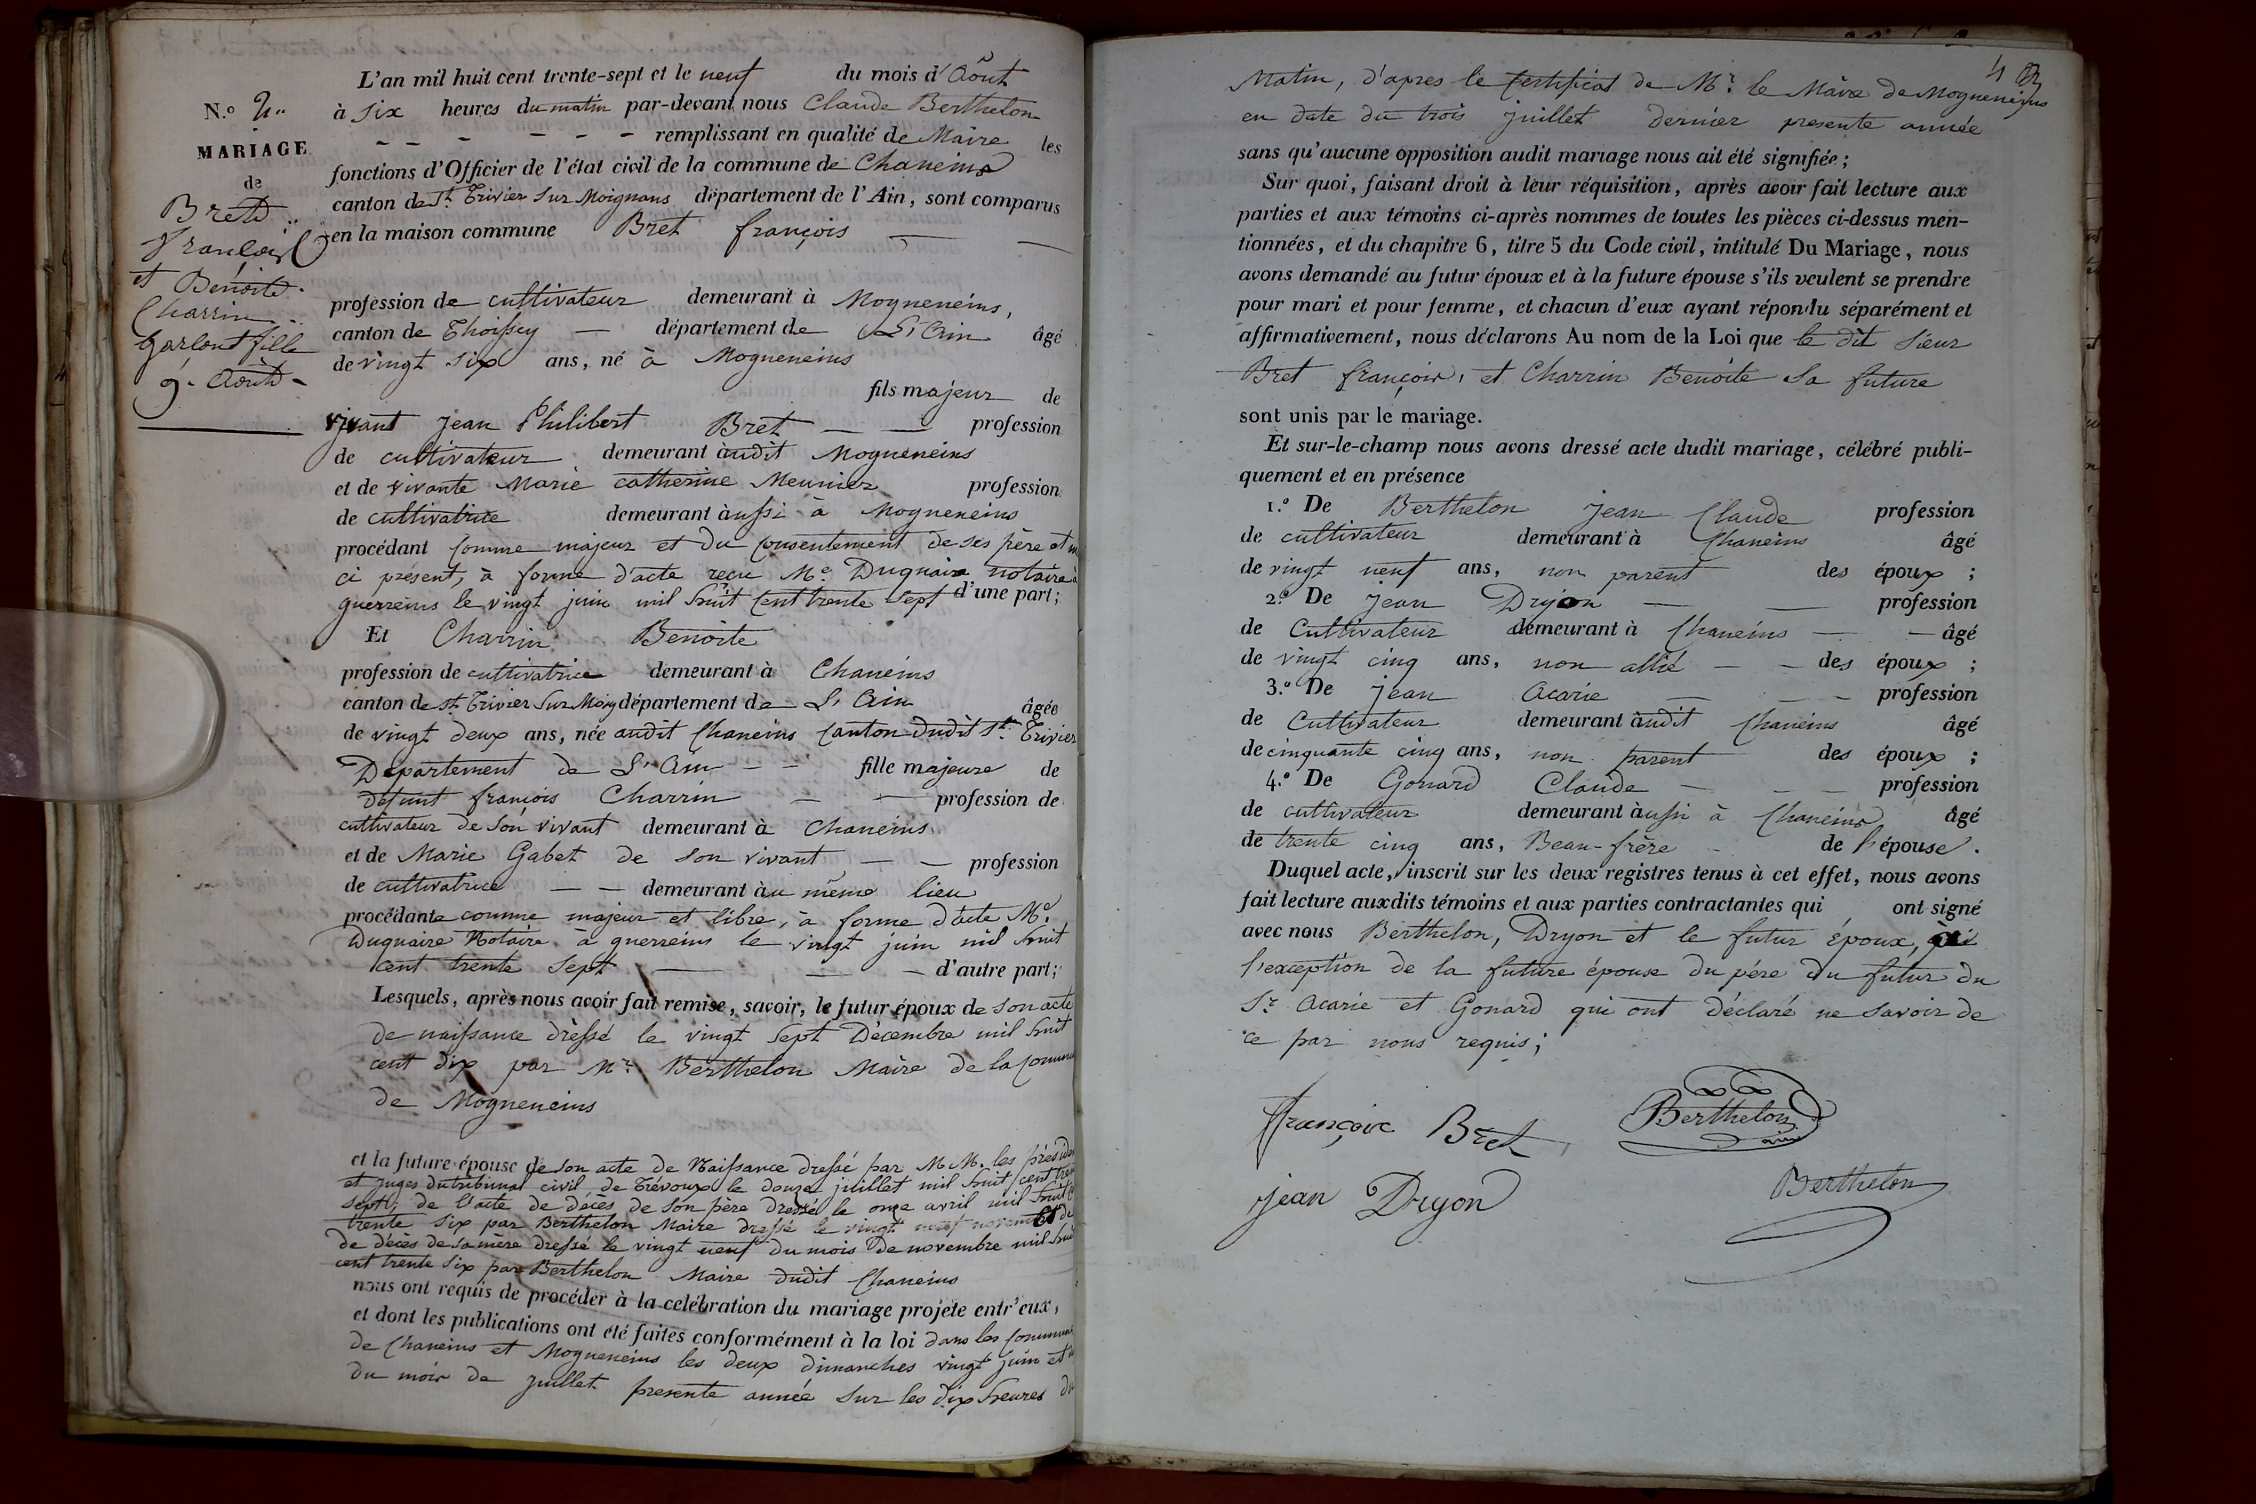 N.º 2..
MARIAGE
de
Bret
François
et Benoite
Charrin
Garlont fille
9. Août
L'an mil huit cent trente-sept et le neuf du mois d'Août
à six heures du matin par-devant nous Claude Berthelon
remplissant en qualité de Maire les
fonctions d'Officier de l'état civil de la commune de Chaneins
canton de St. Trivier Sur Moignans département de l'Ain, sont comparus
en la maison commune Bret françois
profession de cultivateur demeurant à Mogneneins,
canton de Thoissey département de L'Ain âgé
de vingt six ans, né à Mogneneins
fils majeur de
vivant jean Philibert Bret profession
de cultivateur demeurant audit Mogneneins
et de vivante Marie catherine Meunier profession
de cultivatrice demeurant àussi à Mogneneins
procédant comme majeur et du consentement de ses père et
ci présent, à forme d'acte reçu Me. Duquaire notaire à
guerreins le vingt juin mil huit cent trente sept d'une part;
Et Charrin Benoite
profession de cultivatrice demeurant à Chaneins
canton de St. Trivier Sur Moig département de L'Ain âgée
de vingt deux ans, née audit Chaneins canton dudit St. Trivier
Département de L'Ain fille majeure de
défunt françois Charrin profession de
cultivateur de son vivant demeurant à Chaneins
et de Marie Gabet de son vivant profession
de cultivatrice demeurant àu même lieu
procédante comme majeur et libre, à forme d'acte Me.
Duquaire Notaire à guerreins le vingt juin mil huit
cent trente sept d'autre part;
Lesquels, après nous avoir fait remise, savoir, le futur époux de son acte
de naissance dressé le vingt sept Décembre mil huit
cent dix par Mr. Berthelon Maire de la commune
de Mogneneins
et la future épouse de son acte de Naissance dressé par M.M. les présidens
et juges du tribunal civil de Trévoux le douze juillet mil huit cent trente
sept; de l'acte de décès de son père dressé le onze avril mil huit
trente six par Berthelon Maire dressé le vingt neuf novembre
de décès de sa mère dressé le vingt neuf du mois de novembre mil huit
cent trente six par Berthelon Maire dudit Chaneins
nous ont requis de procéder à la celébration du mariage projeté entr'eux,
et dont les publications ont été faites conformément à la loi dans les communes
de Chaneins et Mogneneins les deux dimanches vingt juin et
du mois de juillet presente année sur les dix heures du
Matin, d'apres le Certificat de Mr. le Maire de Mogneneins
en date du trois juillet dernier presente année
sans qu'aucune opposition audit mariage nous ait été signifiée;
Sur quoi, faisant droit à leur réquisition, après avoir fait lecture aux
parties et aux témoins ci-après nommes de toutes les pièces ci-dessus men-
tionnées, et du chapitre 6, titre 5 du Code civil, intitulé Du Mariage, nous
avons demandé au futur époux et à la future épouse s'ils veulent se prendre
pour mari et pour femme, et chacun d'eux ayant répondu séparément et
affirmativement, nous déclarons Au nom de la Loi que le dit sieur
Bret françois, et Charrin Benoite sa future
sont unis par le mariage.
Et sur-le-champ nous avons dressé acte dudit mariage, célébré publi-
quement et en présence
1.º De Berthelon jean Claude profession
de cultivateur demeurant à Chaneins âgé
de vingt neuf ans, non parent des époux;
2.º De jean Dryon profession
de Cultivateur demeurant à Chaneins âgé
de vingt cinq ans, non allié des époux;
3.º De jean Acarie profession
de Cultivateur demeurant àudit Chaneins âgé
de cinquante cinq ans, non parent des époux;
4.º De Gonard Claude profession
de cultivateur demeurant àussi à Chaneins âgé
de trente cinq ans, Beau-frère de l'épouse.
Duquel acte, inscrit sur les deux registres tenus à cet effet, nous avons
fait lecture auxdits témoins et aux parties contractantes qui ont signé
avec nous Berthelon, Dryon et le futur époux, à
l'exception de la future épouse du père du futur du
Sr. Acarie et Gonard qui ont déclaré ne savoir de
ce par nous requis;
françoix Bret
Berthelon
jean Dryon
Berthelon